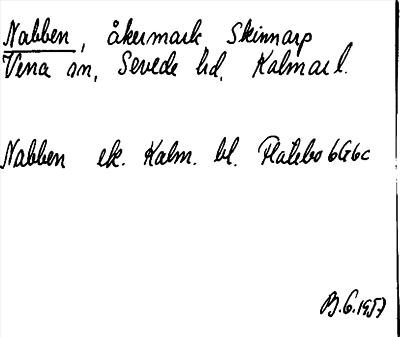 Nabben, åkermark, Skinnarp
Vena sn, Sevede hd, Kalmar l.
Nabben ek. Kalm. bl. Flatebo 6G6c
B.G. 1957